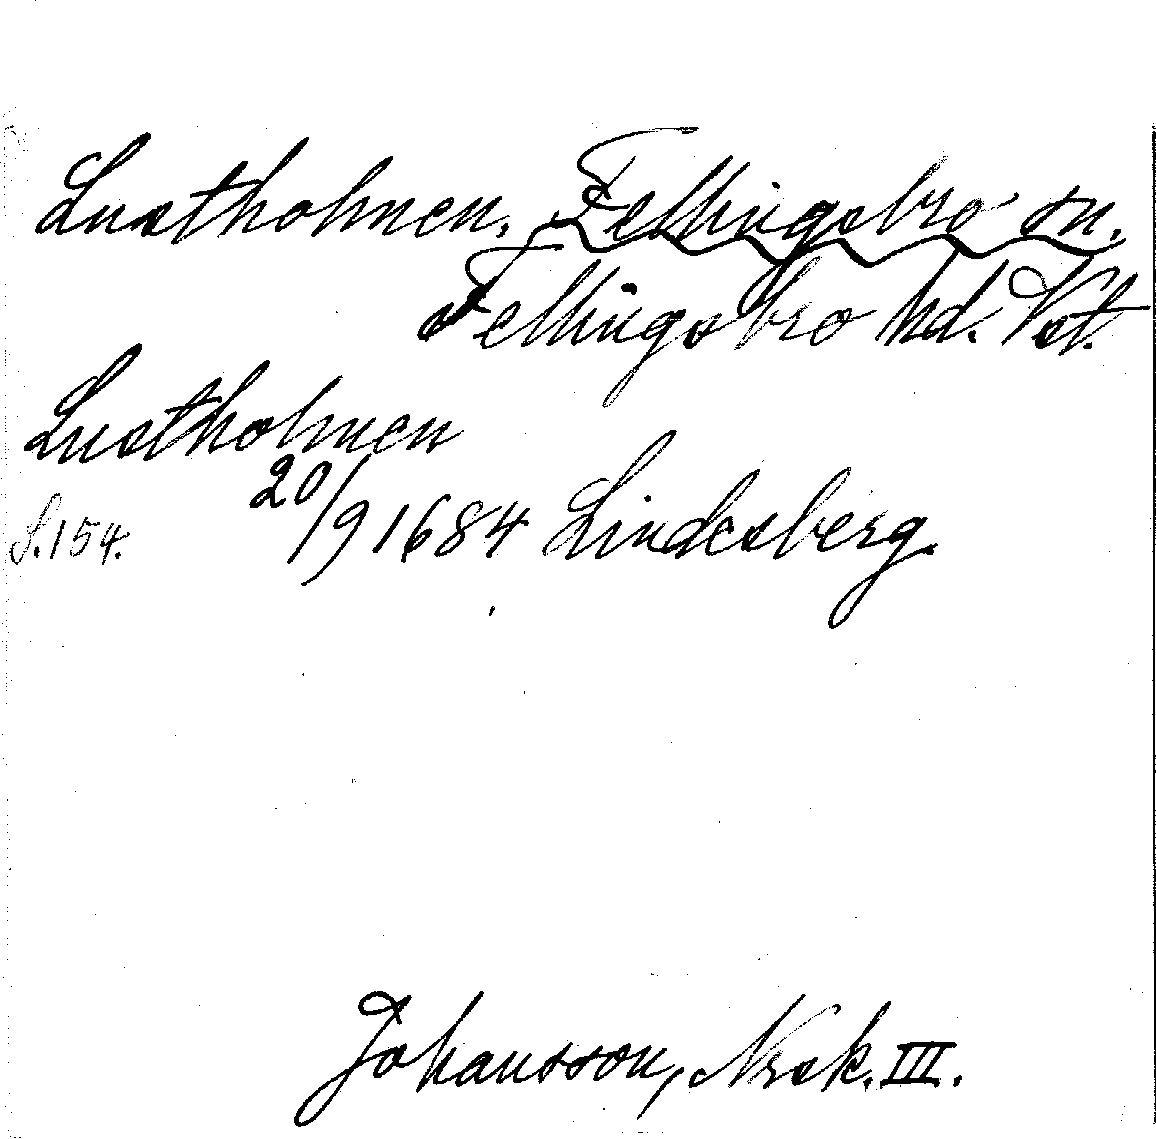 Lustholmen, Fellingsbro sn.
Fellingsbro hd. Vst.
Lustholmen
S. 154. 20/9 1684 Lindesberg.
Johansson, Nrsk. III.